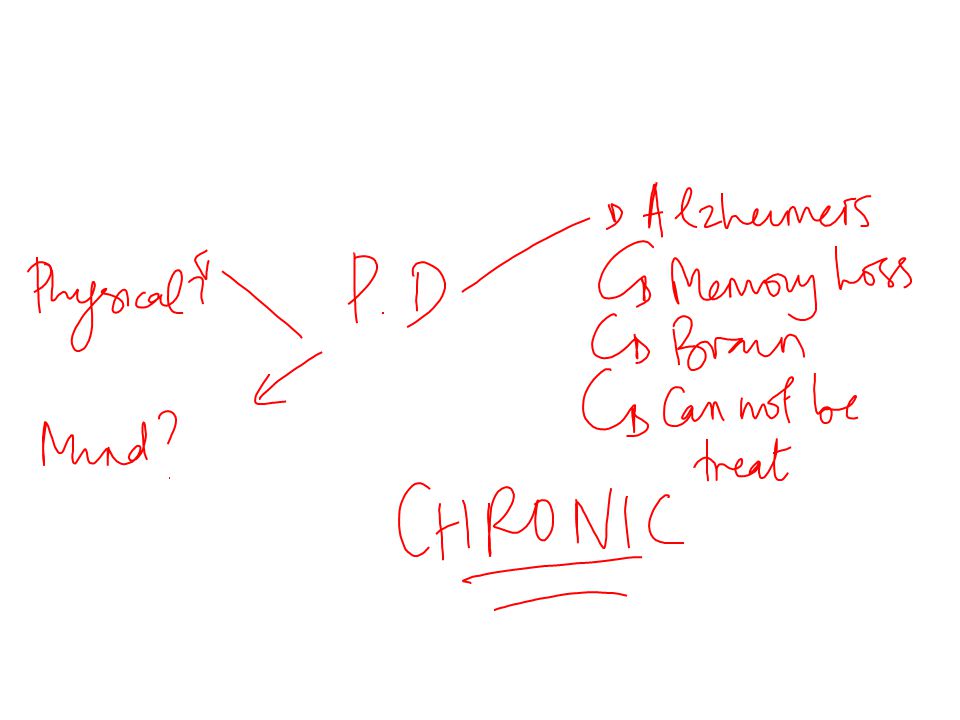 Alzheimers
Physical?
P.D
Memory Loss
Brain
Mind?
Can not be
treat
CHRONIC